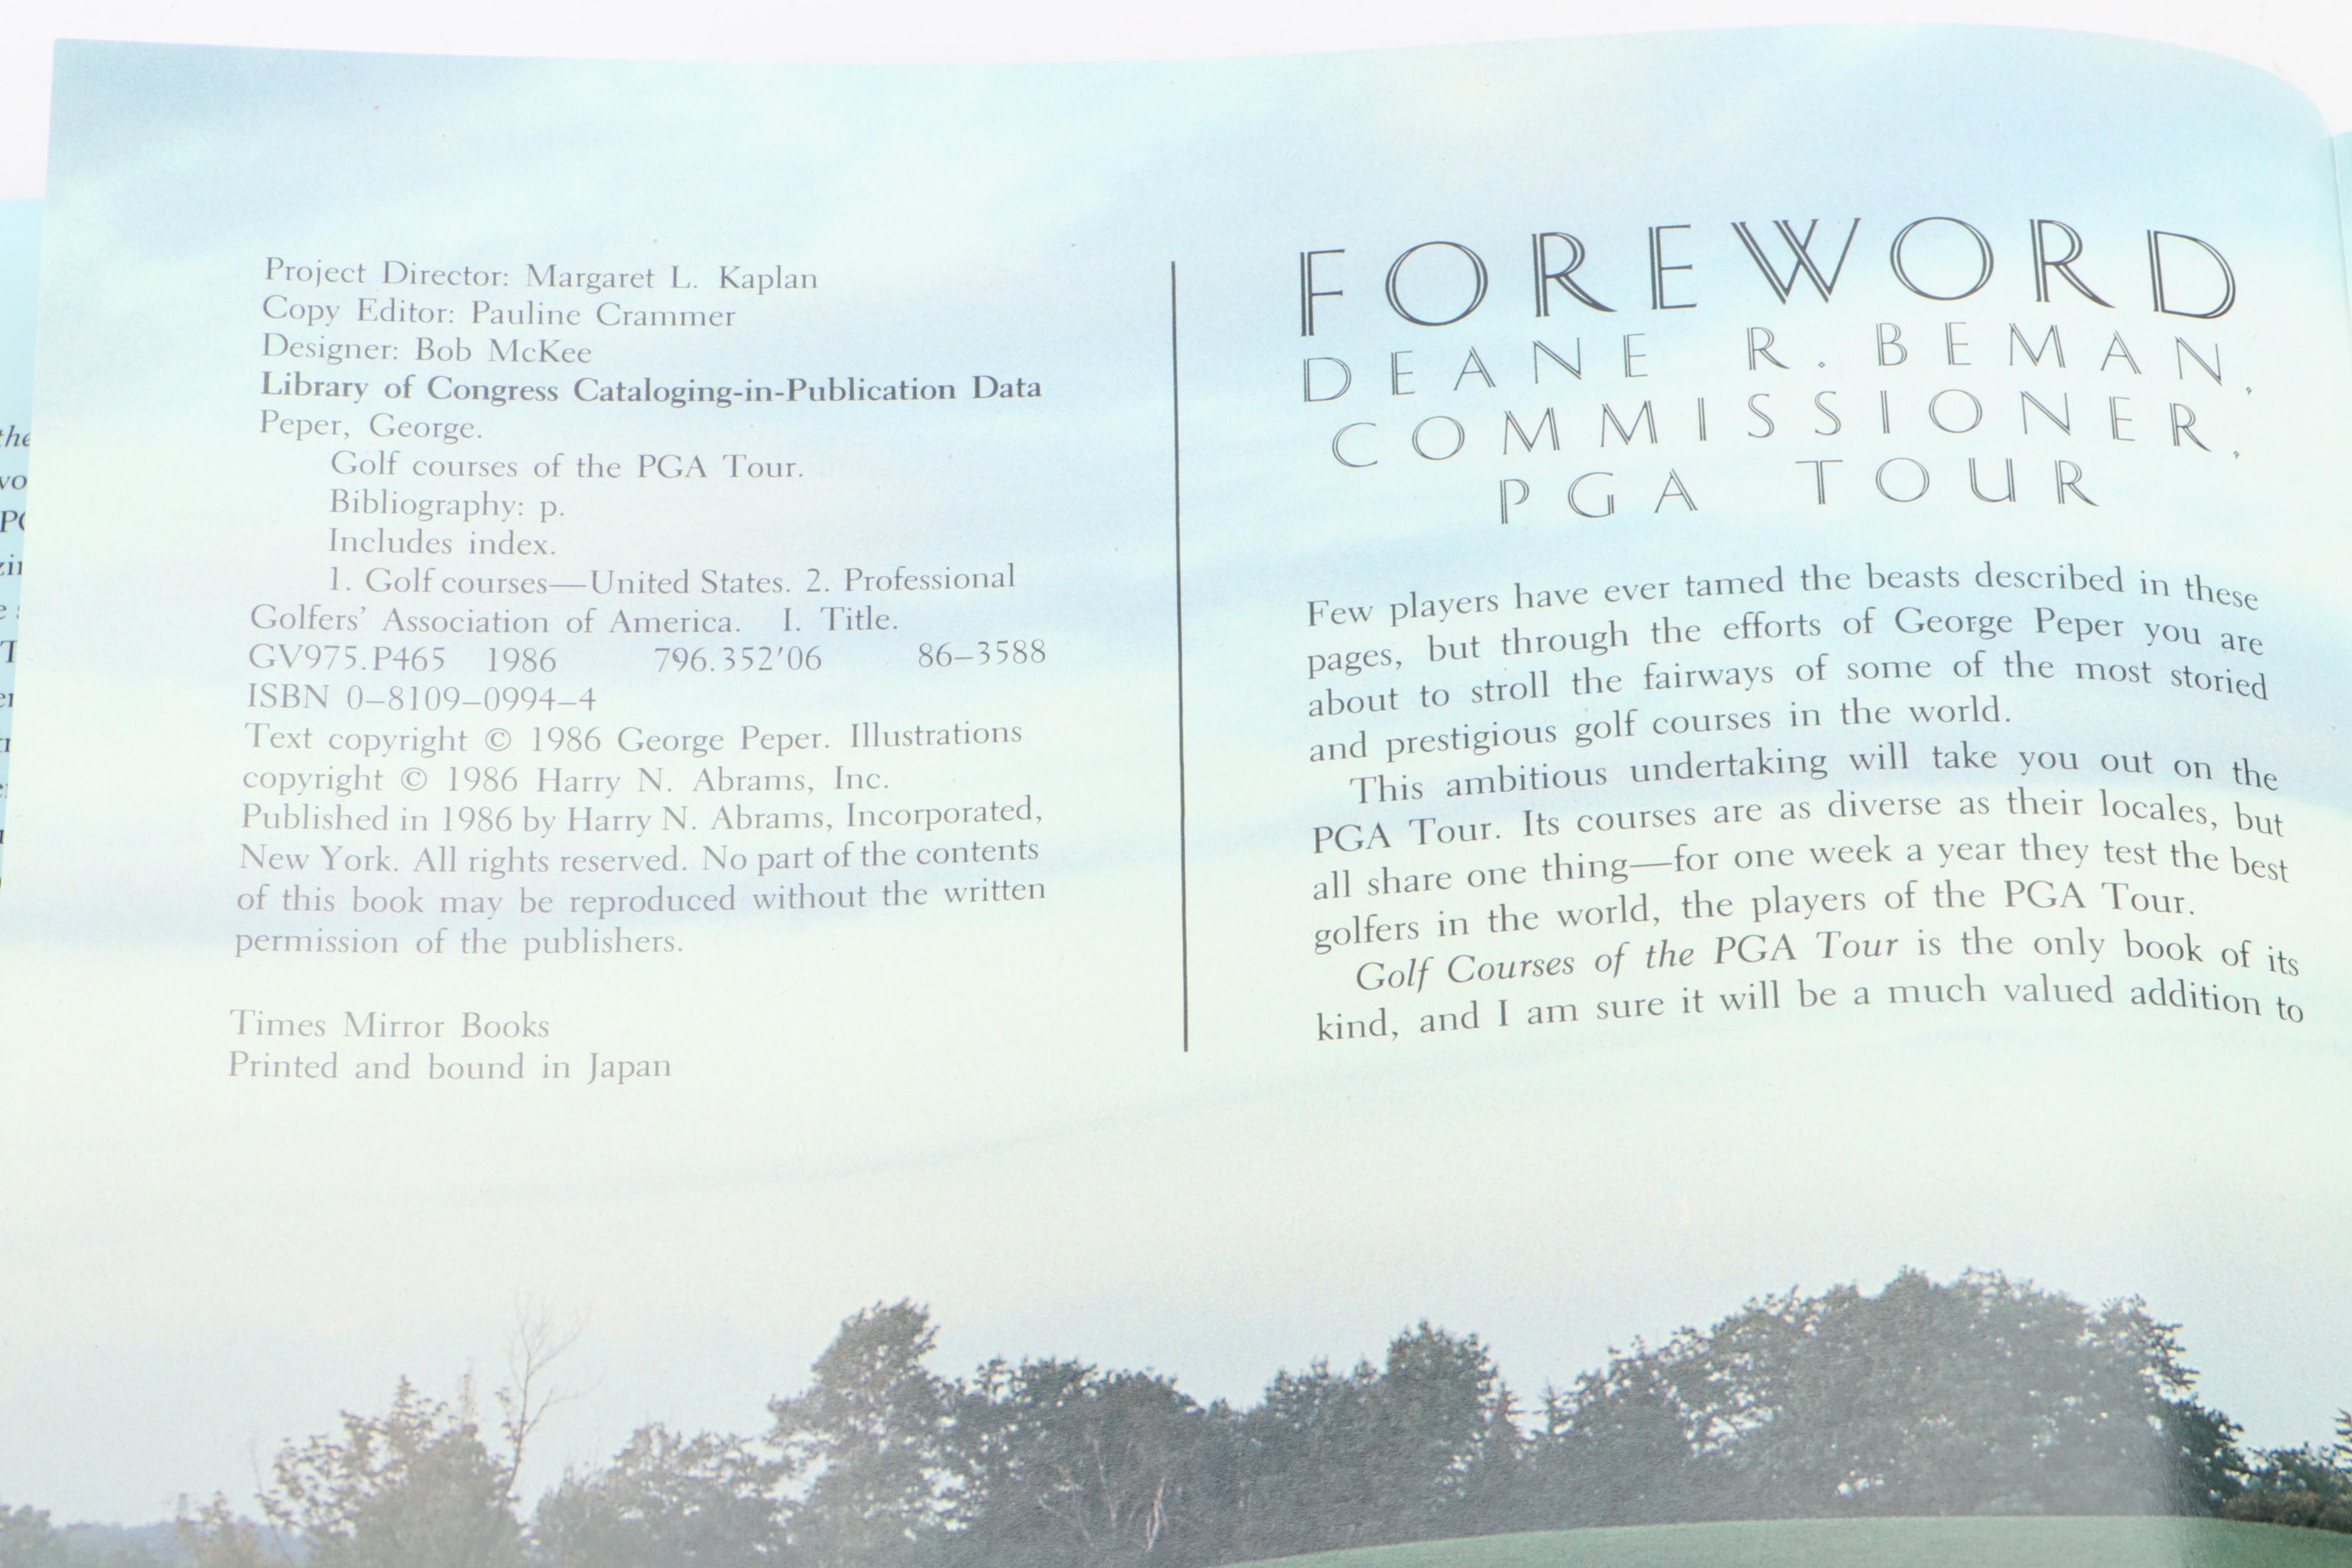 Project Director: Margaret L. Kaplan
Copy Editor: Pauline Crammer
Designer: Bob McKee
Library of Congress Cataloging-in-Publication Data
Peper, George.
Golf courses of the PGA Tour.
Bibliography: p.
Includes index.
1. Golf courses—United States. 2. Professional
Golfers' Association of America. I. Title.
GV975.P465 1986 796.352'06 86–3588
ISBN 0–8109–0994–4
Text copyright © 1986 George Peper. Illustrations
copyright © 1986 Harry N. Abrams, Inc.
Published in 1986 by Harry N. Abrams, Incorporated,
New York. All rights reserved. No part of the contents
of this book may be reproduced without the written
permission of the publishers.
Times Mirror Books
Printed and bound in Japan
FOREWORD
DEANE R. BEMAN,
COMMISSIONER,
PGA TOUR
Few players have ever tamed the beasts described in these
pages, but through the efforts of George Peper you are
about to stroll the fairways of some of the most storied
and prestigious golf courses in the world.
This ambitious undertaking will take you out on the
PGA Tour. Its courses are as diverse as their locales, but
all share one thing—for one week a year they test the best
golfers in the world, the players of the PGA Tour.
Golf Courses of the PGA Tour is the only book of its
kind, and I am sure it will be a much valued addition to